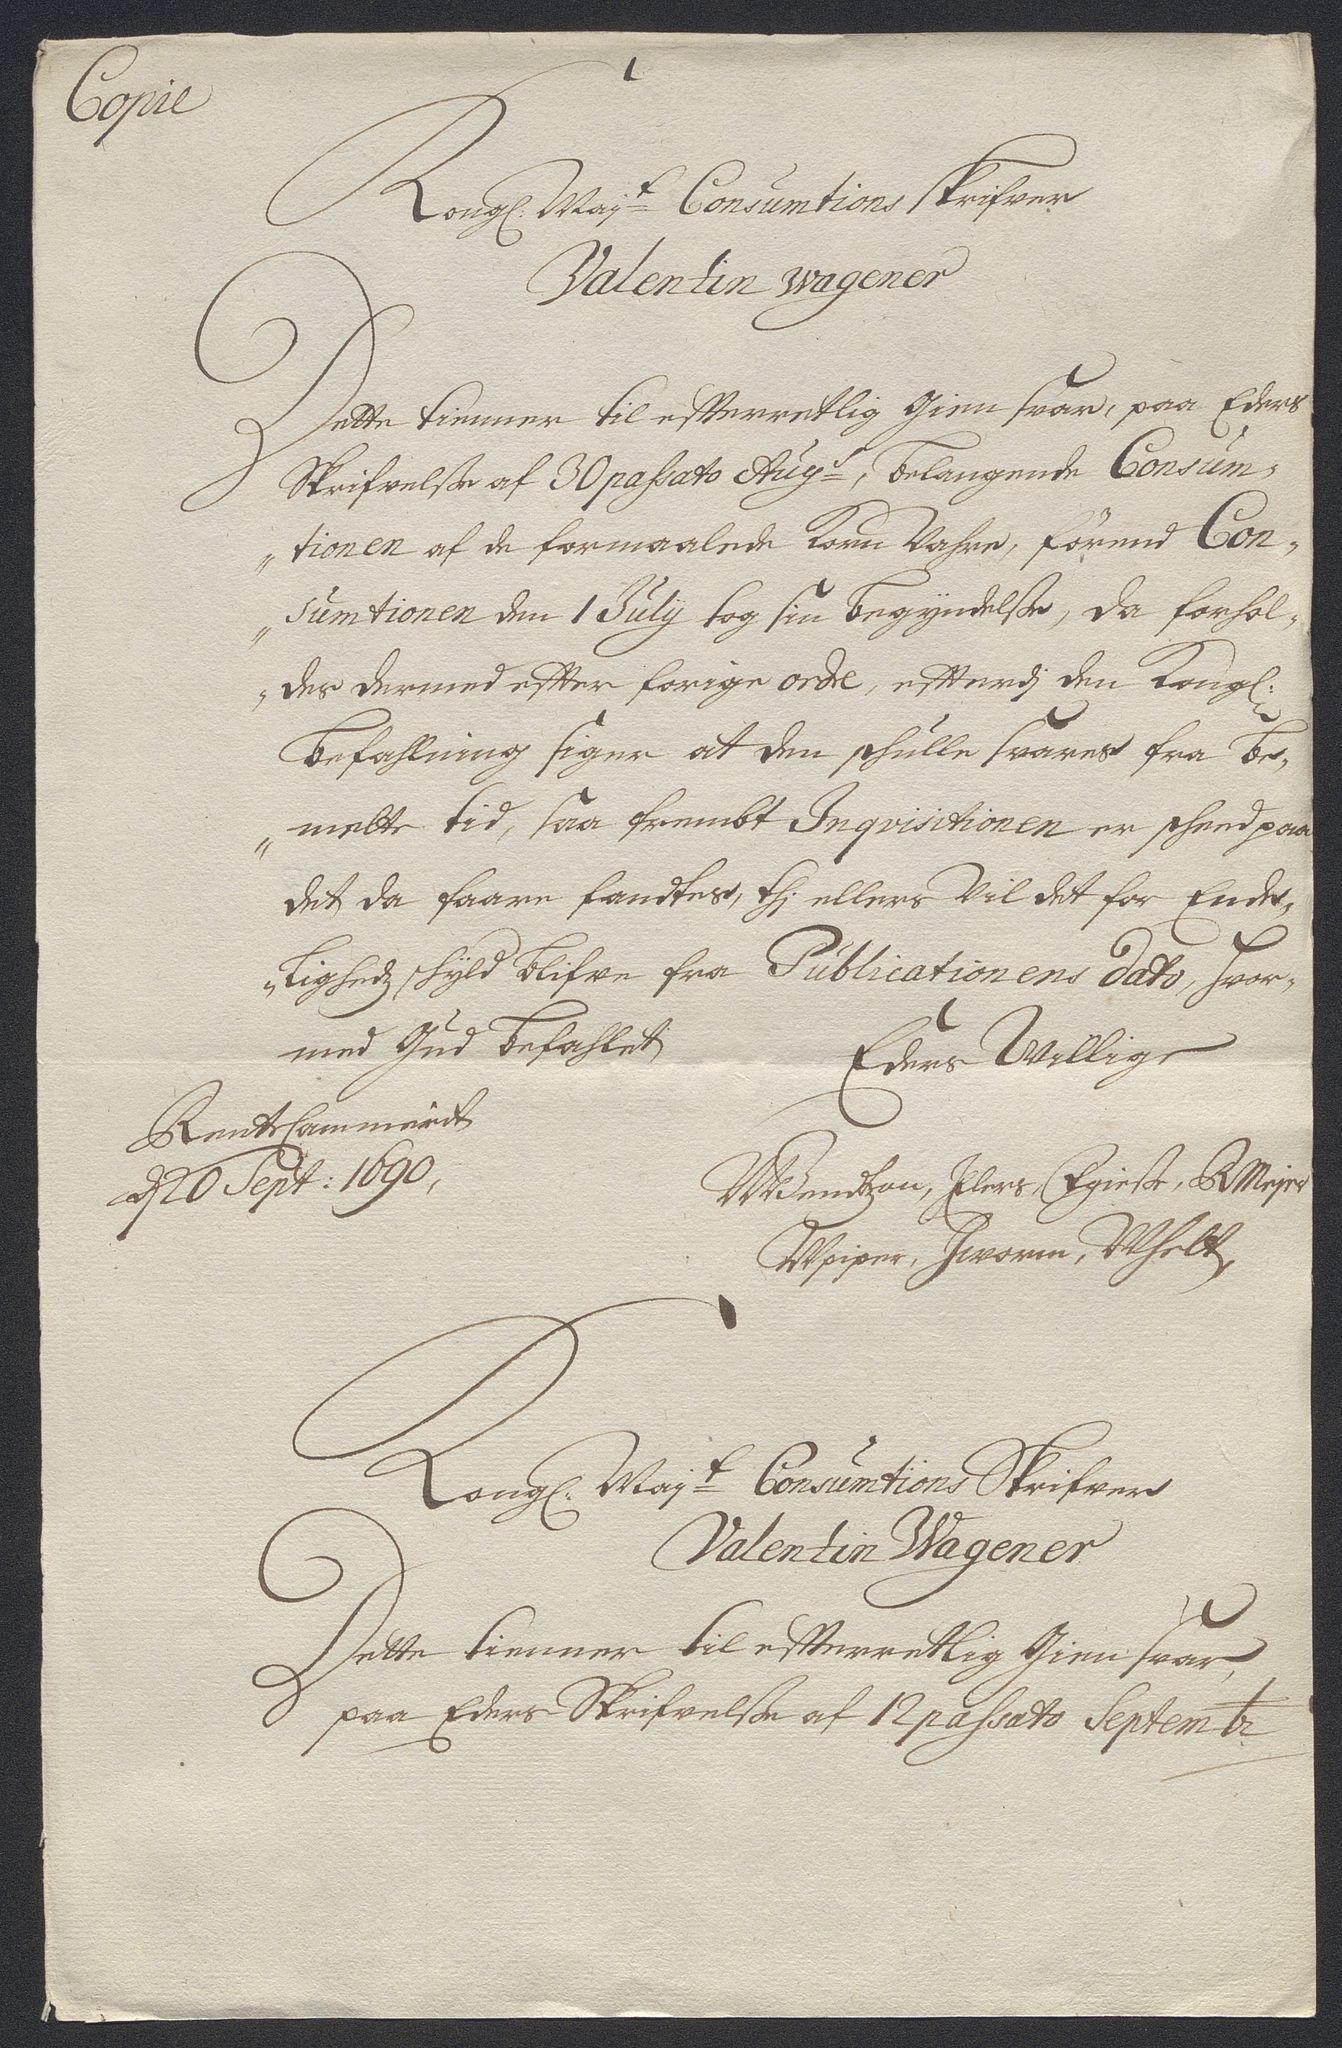 Copie
Kongl: Maj:t Consumtions Skrifver
Valentin Wagener
Dette tienner til effterretlig Giensvar, paa Eders
Skrifvelsse af 30 passato Aug:t, belangende Consum-
"tionen af de formaalede Korn Vahre, förend Con-
"sumtionen den 1 July tog sin begyndelsse, da forhol-
"des dermed effter forige ordre, effterdj den Kongl:
befahlning siger at den schulle svares fra be-
"melte tid, saa frembt Inqvisitionen er scheed paa
det da faare fandtes, thi ellers vil det for Ende-
"lighedz schyld blifve fra Publicationens dato, hvor-
med Gud befahlet
Eders Willige
RenteCammerit
d 20 Sept: 1690,
Meyer
Worm,
Kongl: Maj:t Consumtions Skrifver
Valentin Wagener
Dette tienner til effterretlig Giensvar,
paa Eders Skrifvelsse af 12 passato Septembr